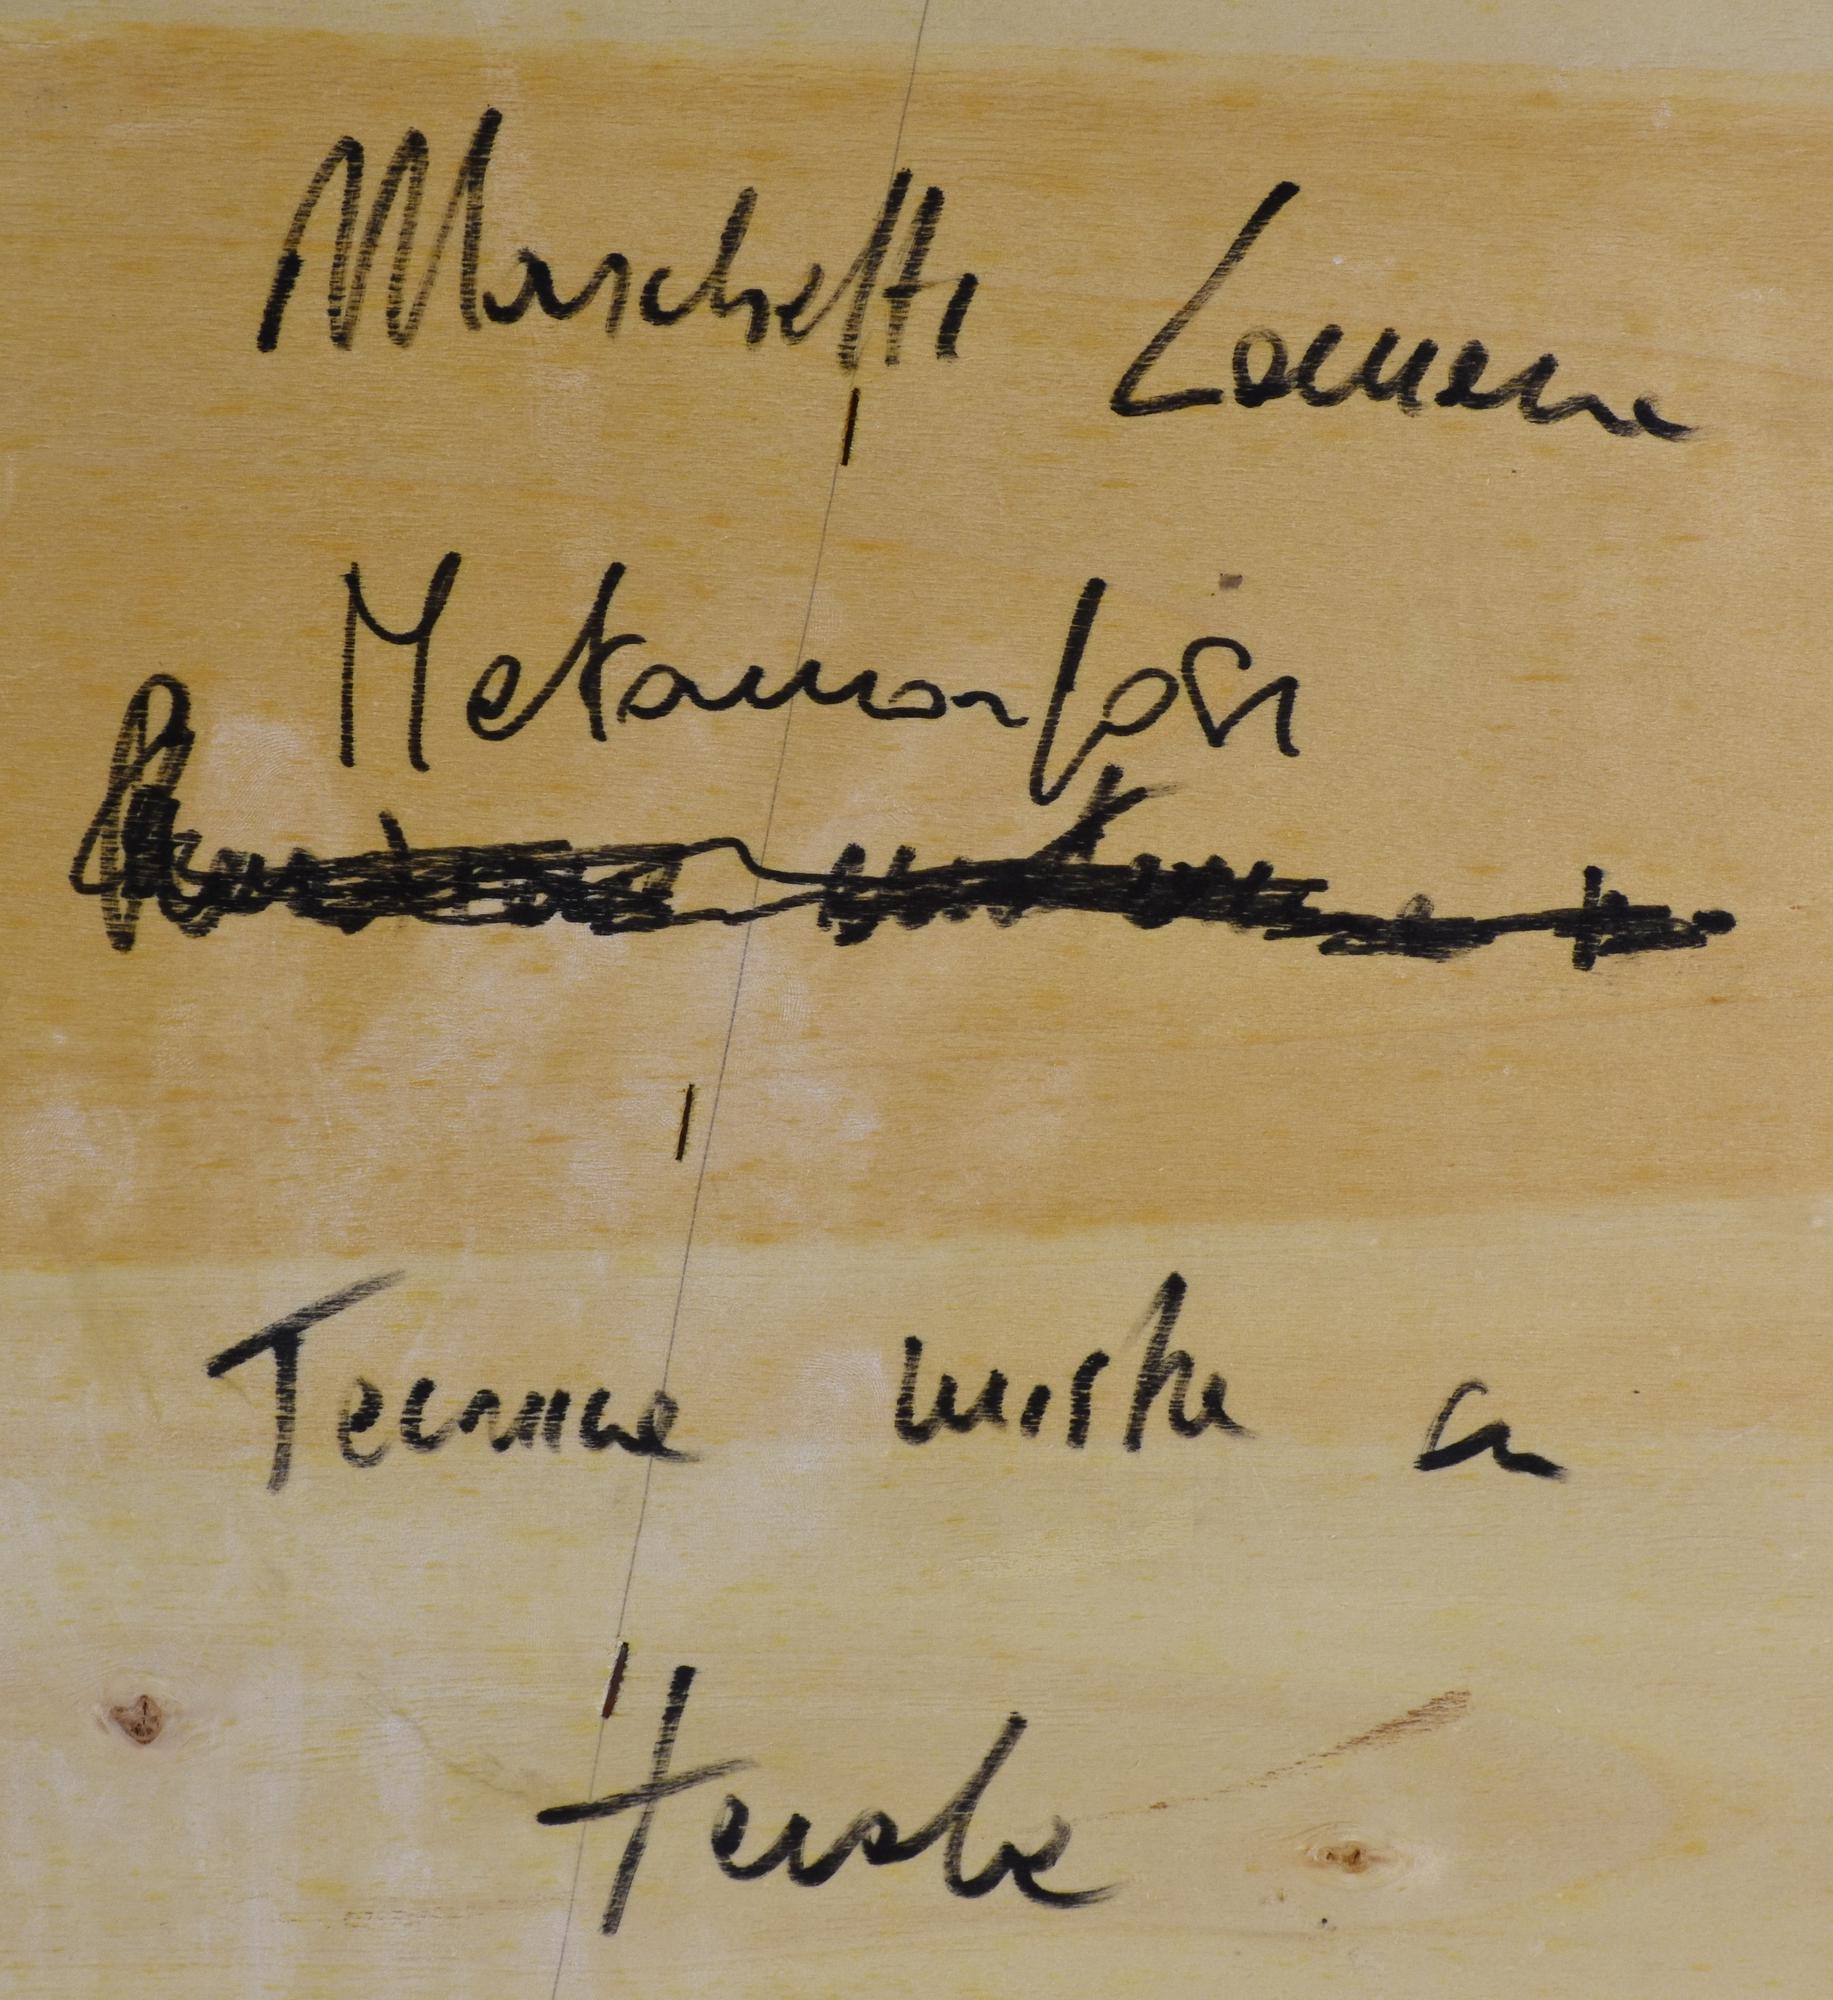 Marchetti Lorena
Metamorfosi
Tecnica mista su
tavola